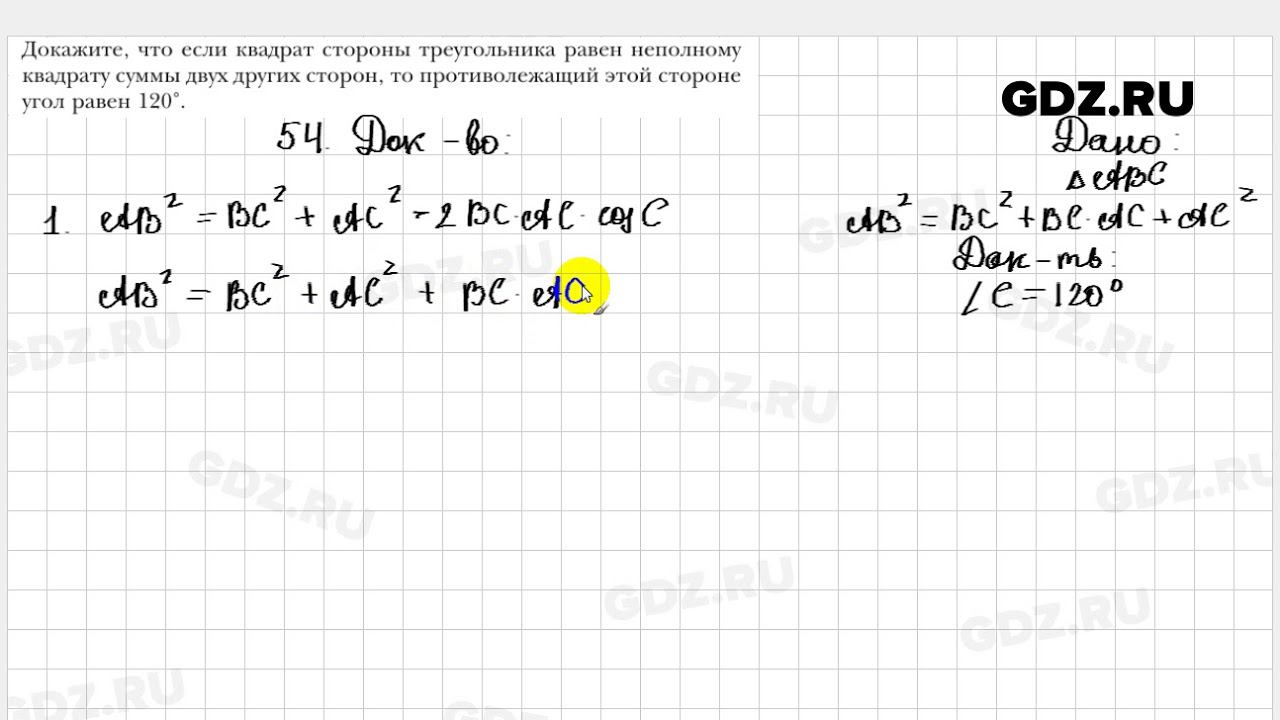 Докажите, что если квадрат стороны треугольника равен неполному
квадрату суммы двух других сторон, то противолежащий этой стороне
угол равен 120°.
GDZ.RU
54. Док-во:
Дано:
△ABC
1. AB² = BC² + AC² - 2BC·AC·cos C
AB² = BC² + BC·AC + AC²
Док-ть:
AB² = BC² + AC² + BC·AC
∠C = 120°
GDZ.RU
GDZ.RU
GDZ.RU
GDZ.RU
GDZ.RU
GDZ.RU
GDZ.RU
GDZ.RU
GDZ.RU
GDZ.RU
GDZ.RU